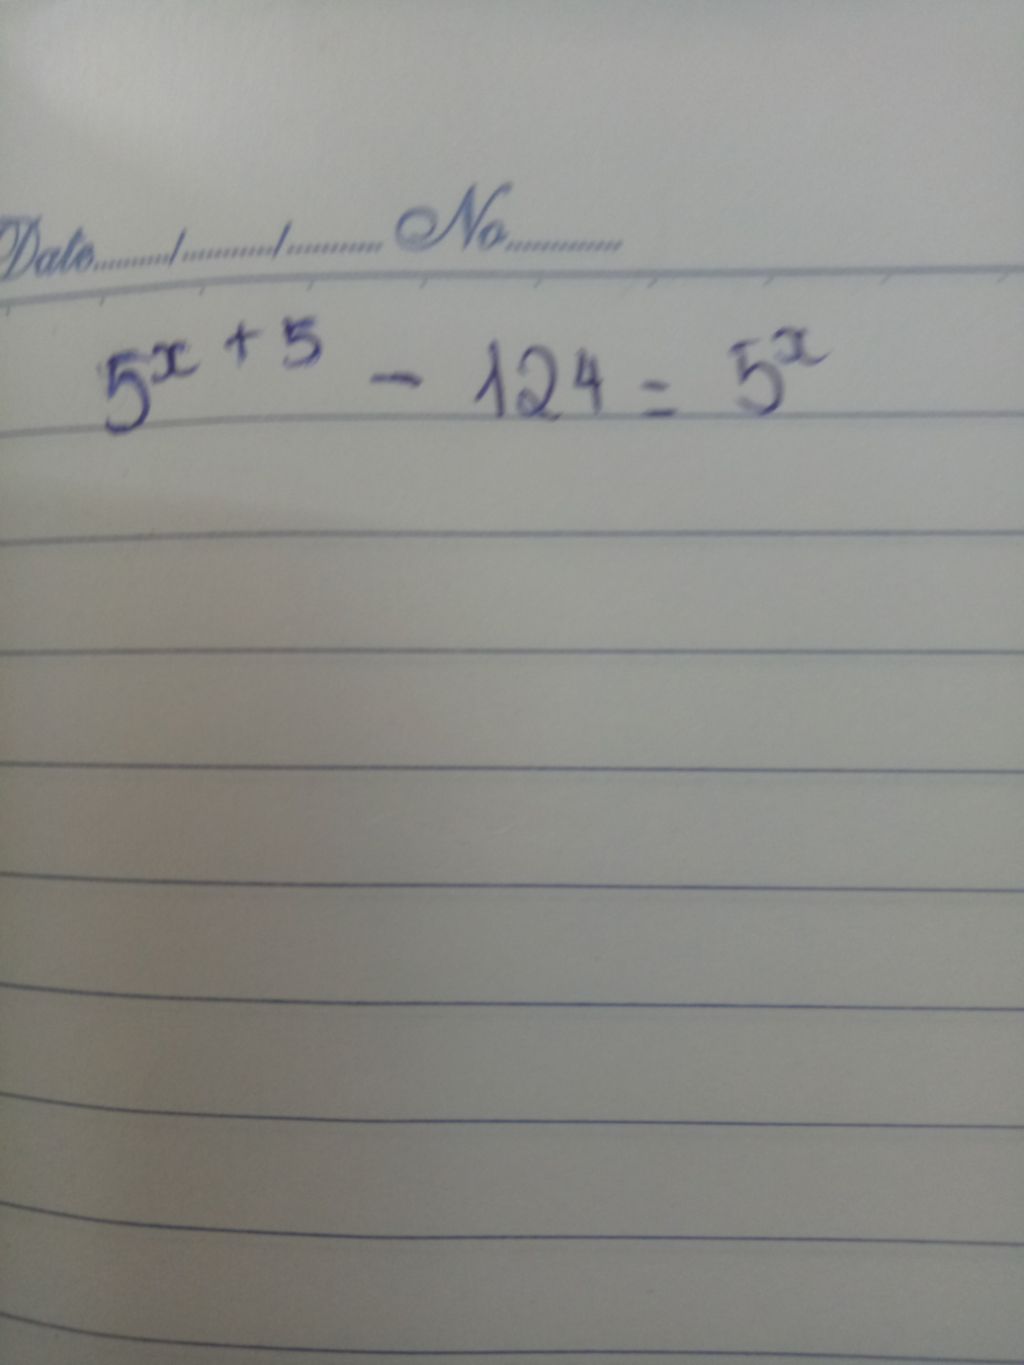 Date........../........../.......... No............
5^{x + 5} - 124 = 5^x